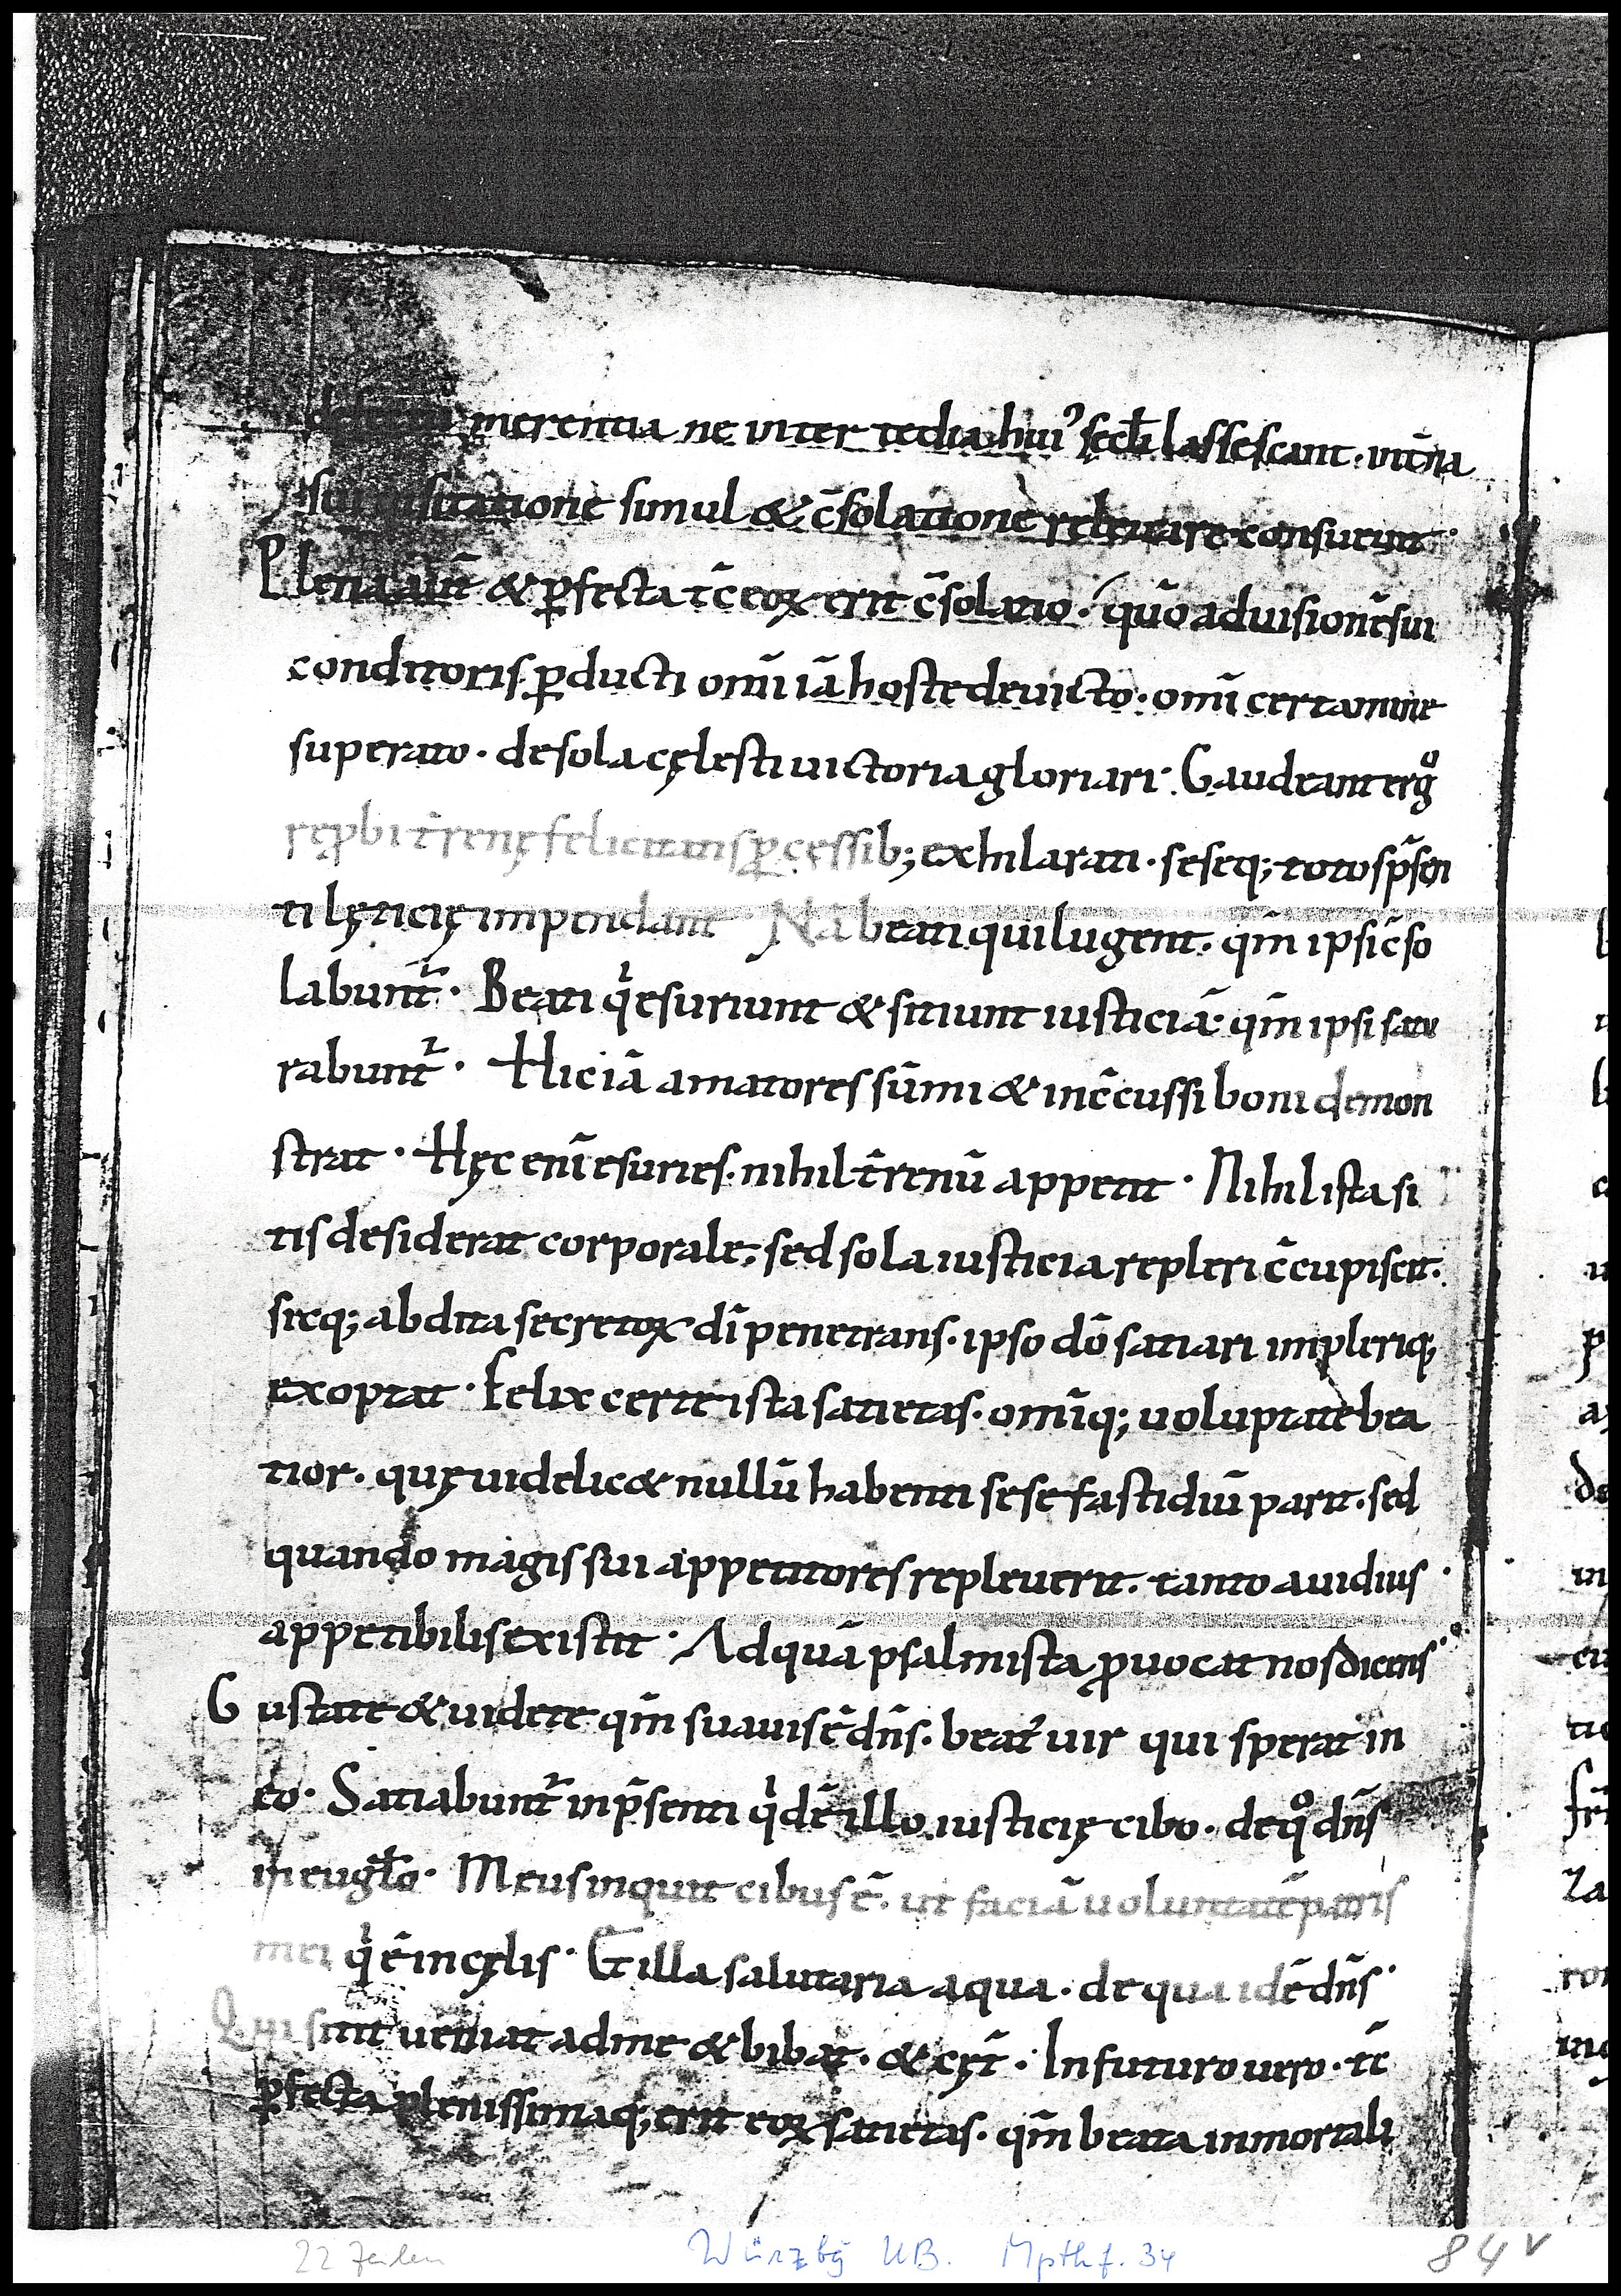 merentia ne inter tedia hui᾽ secłi lassescant · int̄na
sui uisitatione simul & c̄solatione releuare consueuit ·
Plena aut̄ & ꝑfecta tc̄ eoꝝ erit c̄solatio · quō ad uisionē sui
conditoris ꝑducti omī iā hoste deuicto · omī certamine
superato · de sola cęlesti uictoria gloriari · Gaudeant ergͦ
rep̱bi t̄renę felicitatis ꝓcessib; exhilarati · seseq; toto p̄sen
ti lęticię impendant · Nā beati qui lugent · qm̄ ipsi c̄so
labunt᷑ · Beati qͥ esuriunt & sitiunt iusticiā · qm̄ ipsi satu
rabunt᷑ · Hic iā amatores sūmi & inc̄cussi boni demon
strat · Hęc enī esuries · nihil t̄renū appetit · Nihil ista si
tis desiderat corporale; sed sola iusticia repleri c̄cupiscit ·
sicq; abdita secretoꝝ dī penetrans · ipso dō satiari implerıq;
exoptat · Felix certe ista satietas · omīq; uoluptate bea
tior · quę uidelic& nullū habenti sese fastidiū parit · sed
quando magis sui appetitores repleuerit · tanto auidius ·
appetibilis existit · Ad quā psalmista ꝓuocat nos dicens ·
Gustate & uidete qm̄ suauis ē dn̄s · beat᾽ uir qui sperat in
eo · Satiabunt᷑ in p̄senti qͥdē illo iusticię cibo · de qͦ dn̄s
in eugło · Meus inquit cibus ē · ut faciā uoluntatē patris
mei qͥ ē in cęlis · Et illa salutaria aqua · de qua idē dn̄s ·
Qui sitit ueniat ad me & bibat · & cęt̄ · In futuro uero · tc̄
ꝑfecta plenissimaq; erit eoꝝ satietas · qm̄ beata inmortali
22 Zeilen
Würzbg UB. Mpth.f. 34
84 v